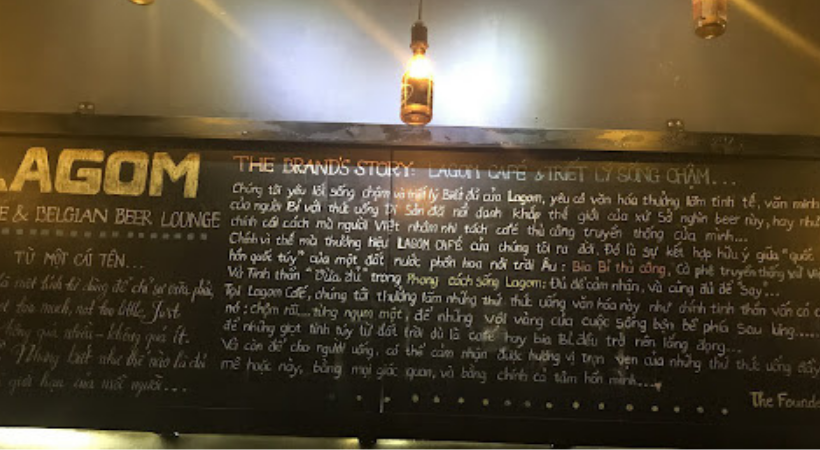 LAGOM
E & BELGIAN BEER LOUNGE
TỪ MỘT CÁI TÊN...
là một tính từ dùng để chỉ sự vừa phải,
too much, not too little, Just
không quá nhiều - không quá ít.
Nhưng biết như thế nào là đủ
giới hạn của mỗi người...
THE BRAND'S STORY: LAGOM CAFÉ & TRIẾT LÝ SỐNG CHẬM...
Chúng tôi yêu lối sống chậm và triết lý Biết đủ của Lagom, yêu cả văn hóa thưởng lãm tinh tế, văn minh
của người Bỉ với thức uống Di Sản đã nổi danh khắp thế giới của xứ sở nghìn beer này, hay như
chính cái cách mà người Việt nhâm nhi tách café thủ công truyền thống của mình...
Chính vì thế mà thương hiệu LAGOM CAFÉ của chúng tôi ra đời. Đó là sự kết hợp hữu ý giữa "quốc
hồn quốc túy" của một đất nước phồn hoa nơi trời Âu: Bia Bỉ thủ công, Cà phê truyền thống xứ
Và Tinh thần "Vừa đủ" trong Phong cách sống Lagom: Đủ để cảm nhận, và cũng đủ để "Say"...
Tại Lagom Café, chúng tôi thưởng lãm những thứ thức uống văn hóa này như chính tinh thần vốn có
nó: chậm rãi... từng ngụm một, để những vội vàng của cuộc sống bộn bề phía sau lưng.....
để những giọt tinh túy từ đất trời dù là café hay bia Bỉ đều trở nên lắng đọng...
Và còn để cho người uống, có thể cảm nhận được hương vị trọn vẹn của những thứ thức uống đầy
mê hoặc này, bằng mọi giác quan, và bằng chính cả tâm hồn mình....
The Founde